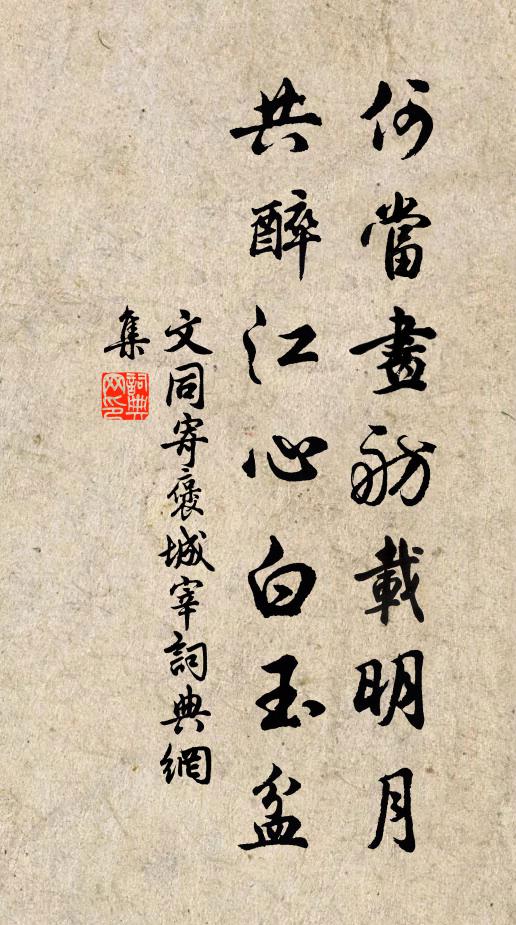 何當畫舫載明月
共醉江心白玉盆
文同寄褒城宰詞典網
集
詞典网印